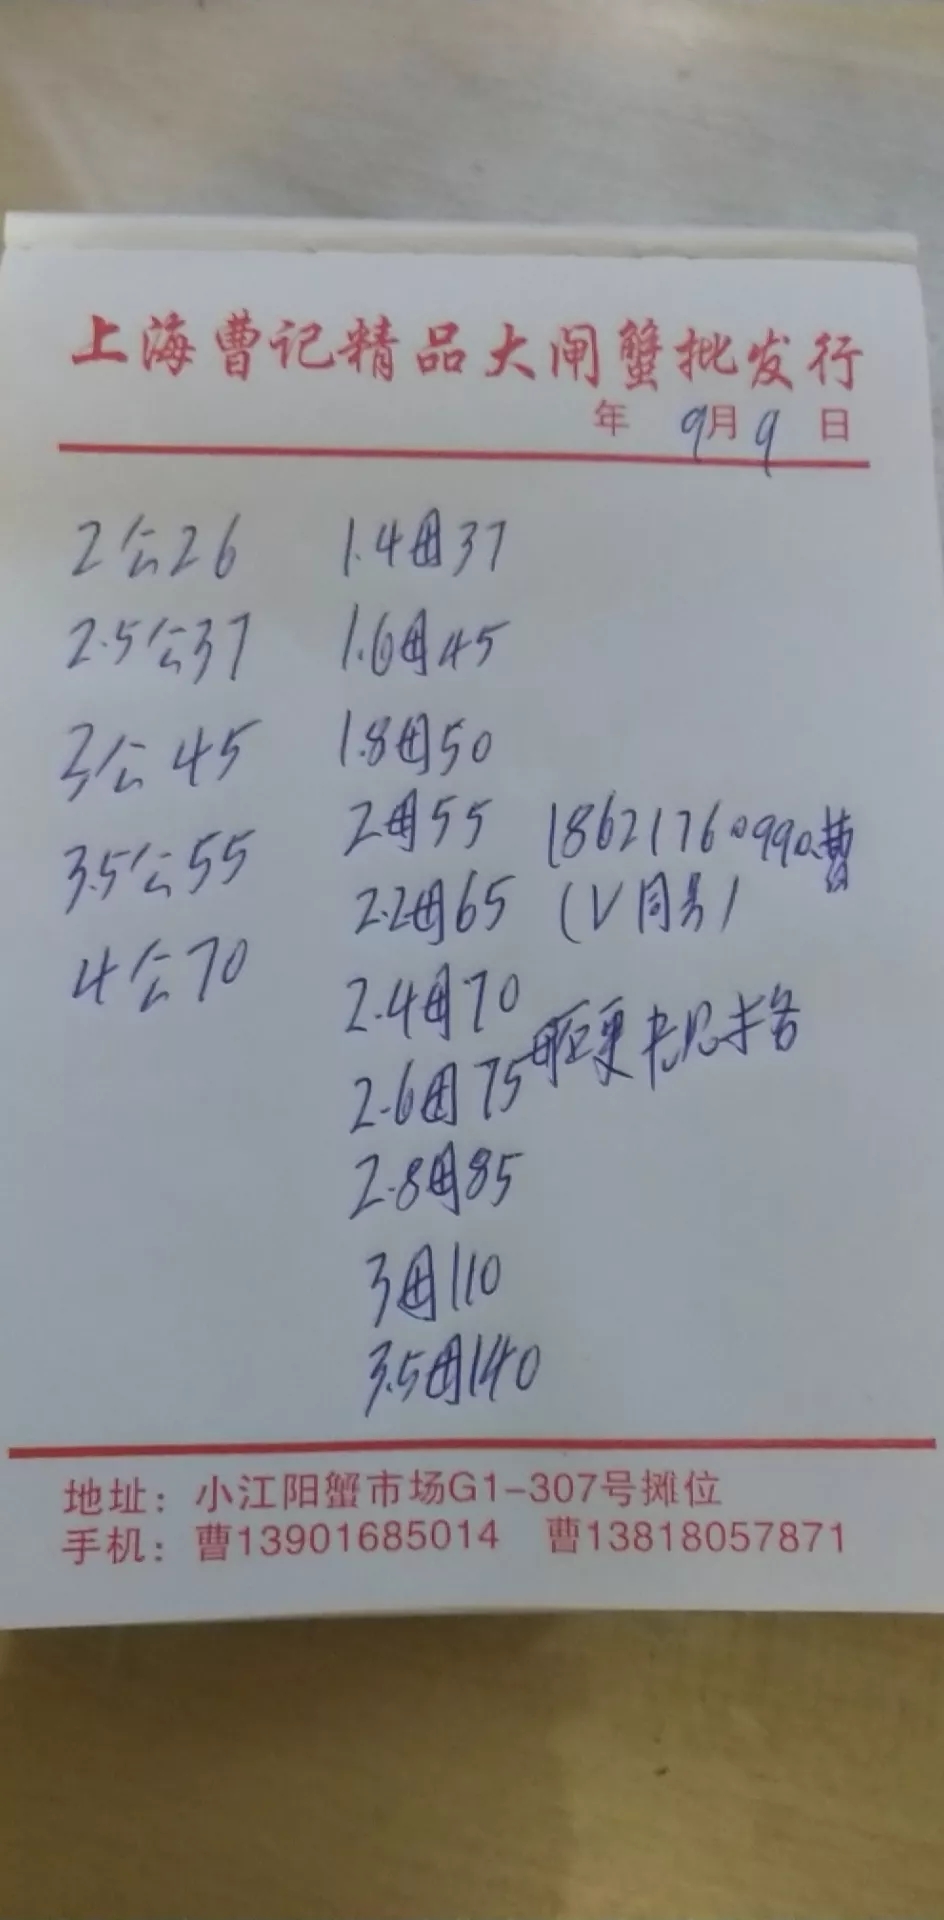 上海曹记精品大闸蟹批发行
年 9月9 日
2公26
2.5公37
3公45
3.5公55
4公70
1.4母37
1.6母45
1.8母50
2母55
2.2母65
2.4母70
2.6母75
2.8母85
3母110
3.5母140
18621760990曹
(V同号)
地址：小江阳蟹市场G1-307号摊位
手机：曹13901685014 曹13818057871